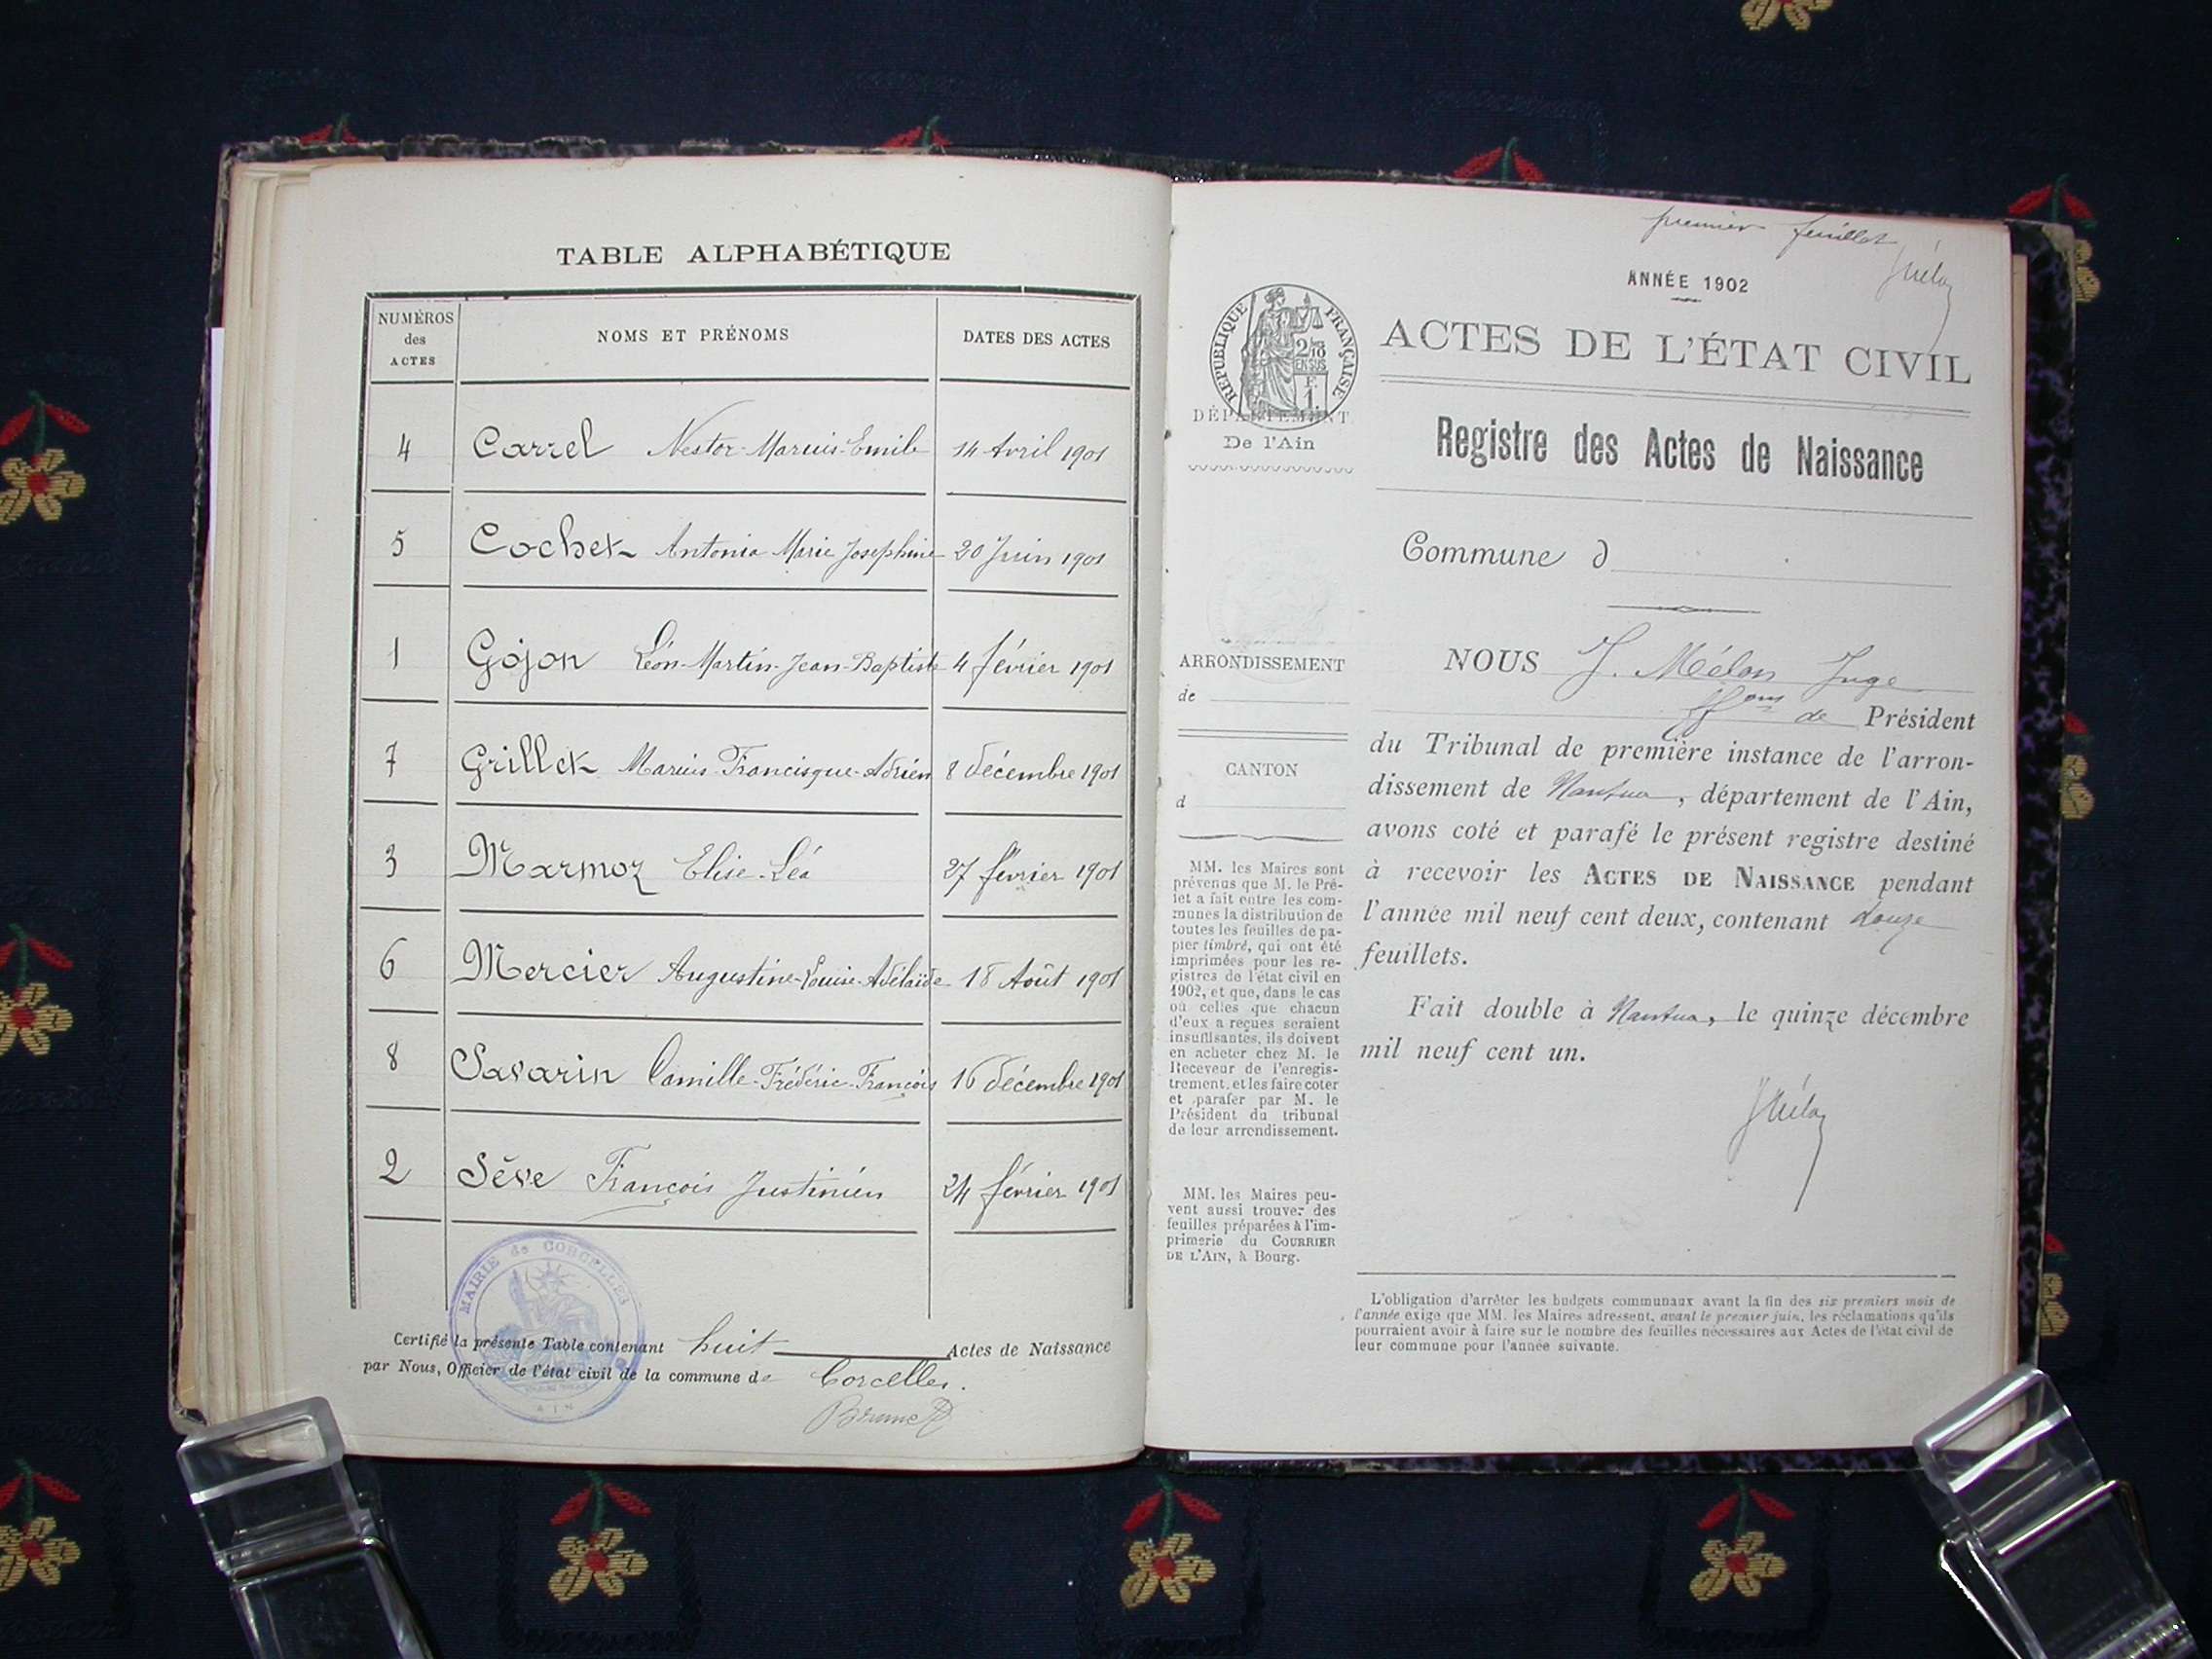 TABLE ALPHABÉTIQUE
NUMÉROS des ACTES NOMS ET PRÉNOMS DATES DES ACTES
4 Carrel Nestor-Marius-Emile 14 Avril 1901
5 Cochet Antonia Marie Josephine 20 Juin 1901
1 Gojon Léon-Martin-Jean-Baptiste 4 février 1901
7 Grillet Marius-Francisque-Adrien 8 décembre 1901
3 Marmoz Elise-Léa 27 février 1901
6 Mercier Augustine-Louise-Adélaïde 18 Août 1901
8 Savarin Camille-Frédéric-François 16 décembre 1901
2 Sève François Justinien 24 février 1901
MAIRIE de CORCELLES
AIN
Certifié la présente Table contenant huit Actes de Naissance
par Nous, Officier de l'état civil de la commune de Corcelles.
premier feuillet
ANNÉE 1902
RÉPUBLIQUE FRANÇAISE
2/10
EN SUS
F.
1.
ACTES DE L'ÉTAT CIVIL
DÉPARTEMENT
De l'Ain
Registre des Actes de Naissance
Commune d
ARRONDISSEMENT
de
CANTON
d
MM. les Maires sont
prévenus que M. le Pré-
fet a fait entre les com-
munes la distribution de
toutes les feuilles de pa-
pier timbré, qui ont été
imprimées pour les re-
gistres de l'état civil en
1902, et que, dans le cas
où celles que chacun
d'eux a reçues seraient
insuffisantes, ils doivent
en acheter chez M. le
Receveur de l'enregis-
trement, et les faire coter
et parafer par M. le
Président du tribunal
de leur arrondissement.
MM. les Maires peu-
vent aussi trouver des
feuilles préparées à l'im-
primerie du COURRIER
DE L'AIN, à Bourg.
NOUS J. Mélon Juge
ffons de Président
du Tribunal de première instance de l'arron-
dissement de Nantua, département de l'Ain,
avons coté et parafé le présent registre destiné
à recevoir les ACTES DE NAISSANCE pendant
l'année mil neuf cent deux, contenant douze
feuillets.
Fait double à Nantua, le quinze décembre
mil neuf cent un.
L'obligation d'arrêter les budgets communaux avant la fin des six premiers mois de
l'année exige que MM. les Maires adressent, avant le premier juin, les réclamations qu'ils
pourraient avoir à faire sur le nombre des feuilles nécessaires aux Actes de l'état civil de
leur commune pour l'année suivante.